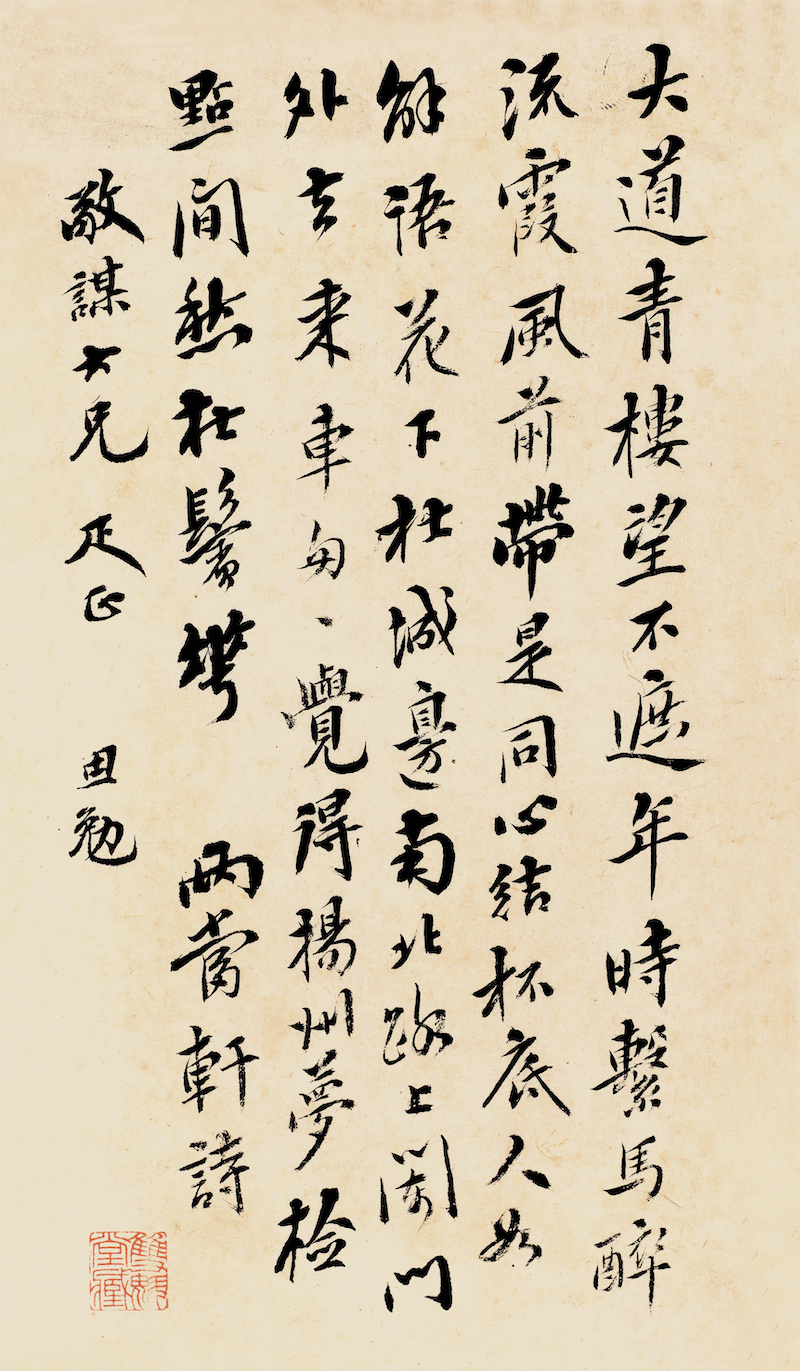 大道青樓望不遮年時繫馬醉
流霞風前帶是同心結杯底人如
解語花下杜城邊南北路上闌門
外去來車匆〻覺得揚州夢檢
點間愁在鬢華 兩當軒詩
敬謀大兄 疋正 田勉